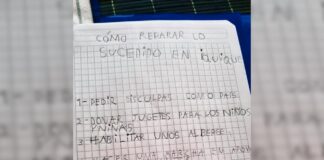 CÓMO REPARAR LO
SUCEDIDO EN IQUIQUE
1- PEDIR DISCULPAS COMO PAIS.
2- DONAR JUGETES PARA LOS NIÑOS
Y NIÑAS.
3- HABILITAR UNOS ALBERGE
UNA MARCHA EN APOY